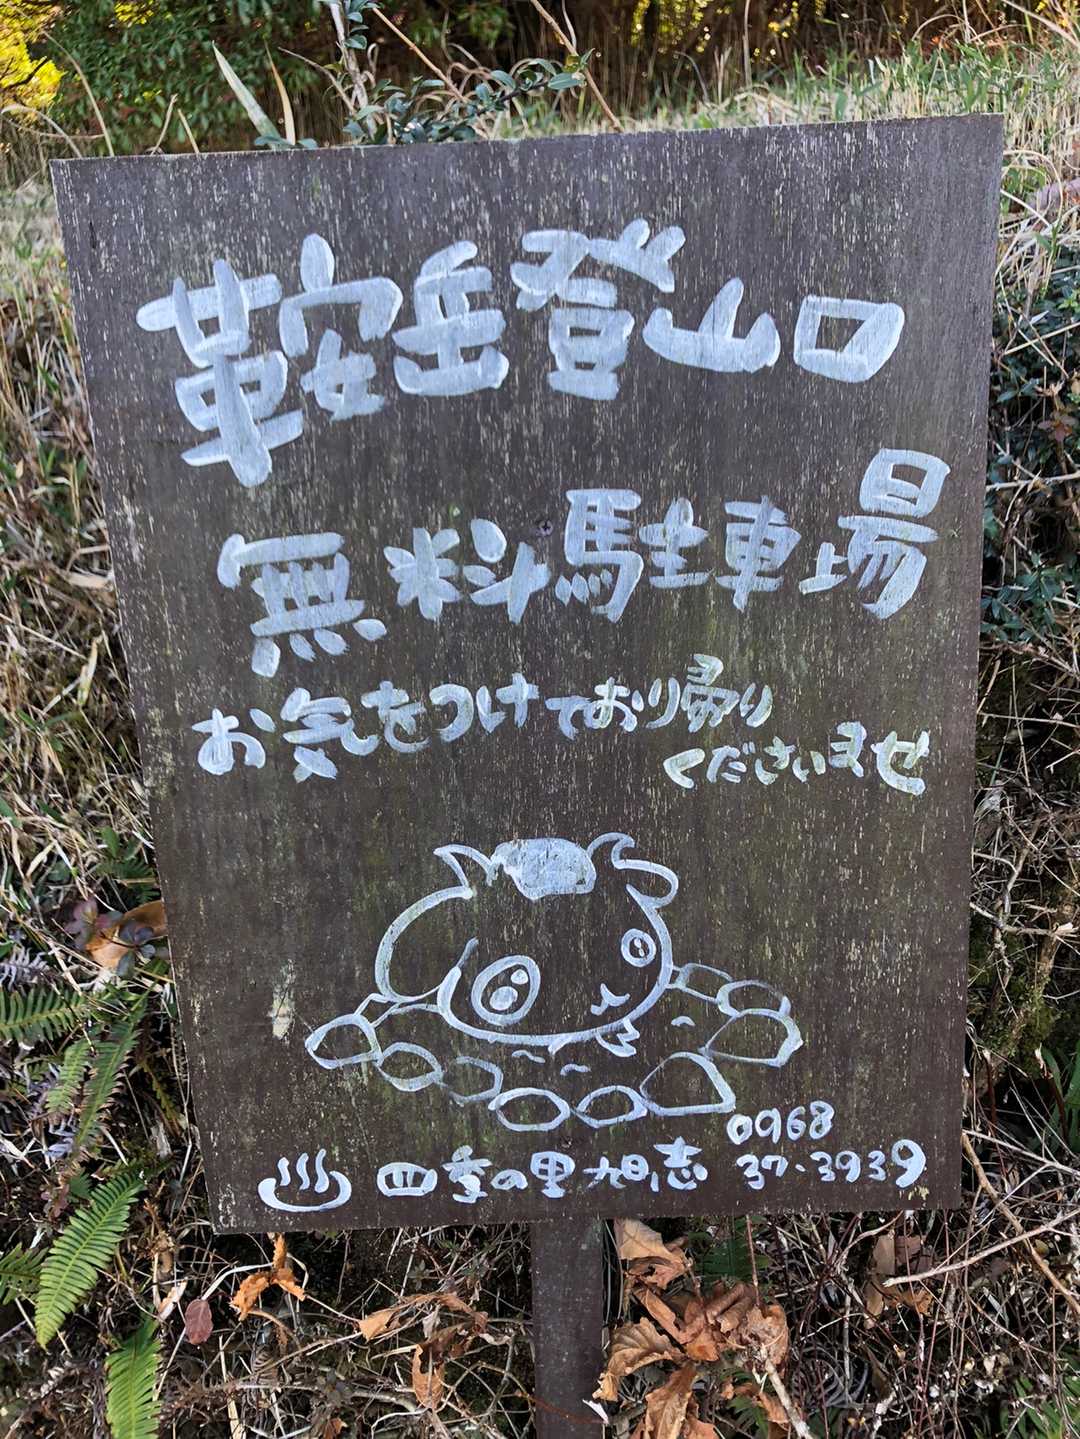 鞍岳登山口
無料駐車場
お気をつけており帰り
くださいませ
♨ 四季の里 旭志 0968
37-3939